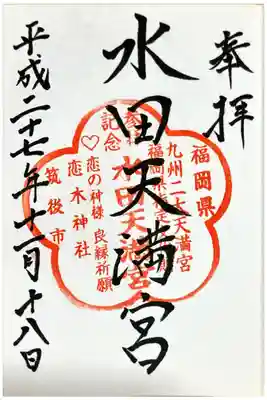 奉拝
水田天満宮
平成二十七年十一月十八日
福岡県
九州二大天満宮
福岡県指定
参拝
水田天満宮
記念
♡恋の神様 良縁祈願
恋木神社
筑後市